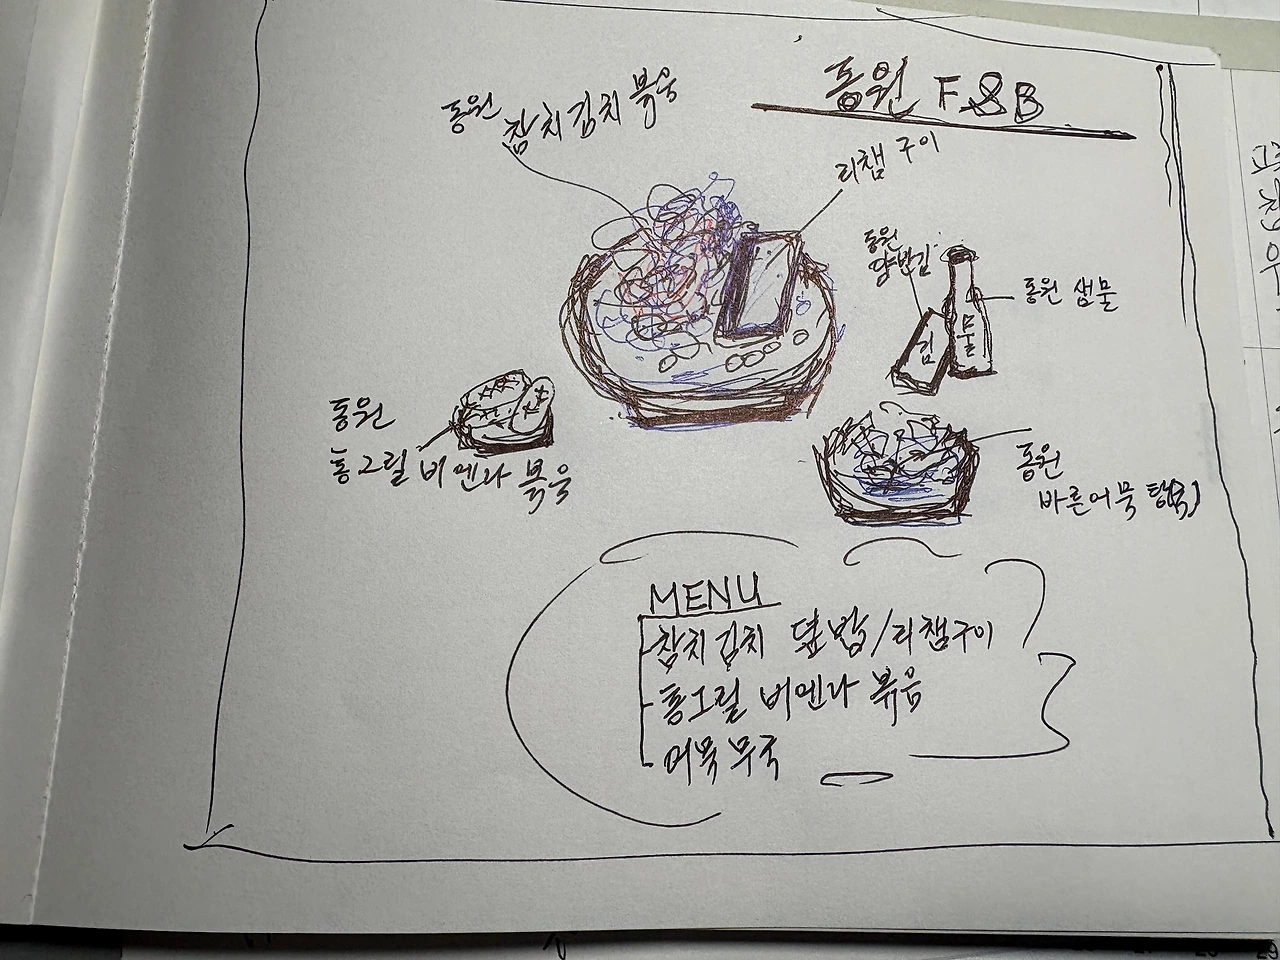 동원 F&B
동원 참치김치볶음
리챔 구이
동원
양반김
동원 샘물
김
물
동원
통그릴 비엔나 볶음
동원
바른어묵 탕(국)
MENU
참치김치 덮밥/리챔구이
통그릴 비엔나 볶음
어묵무국